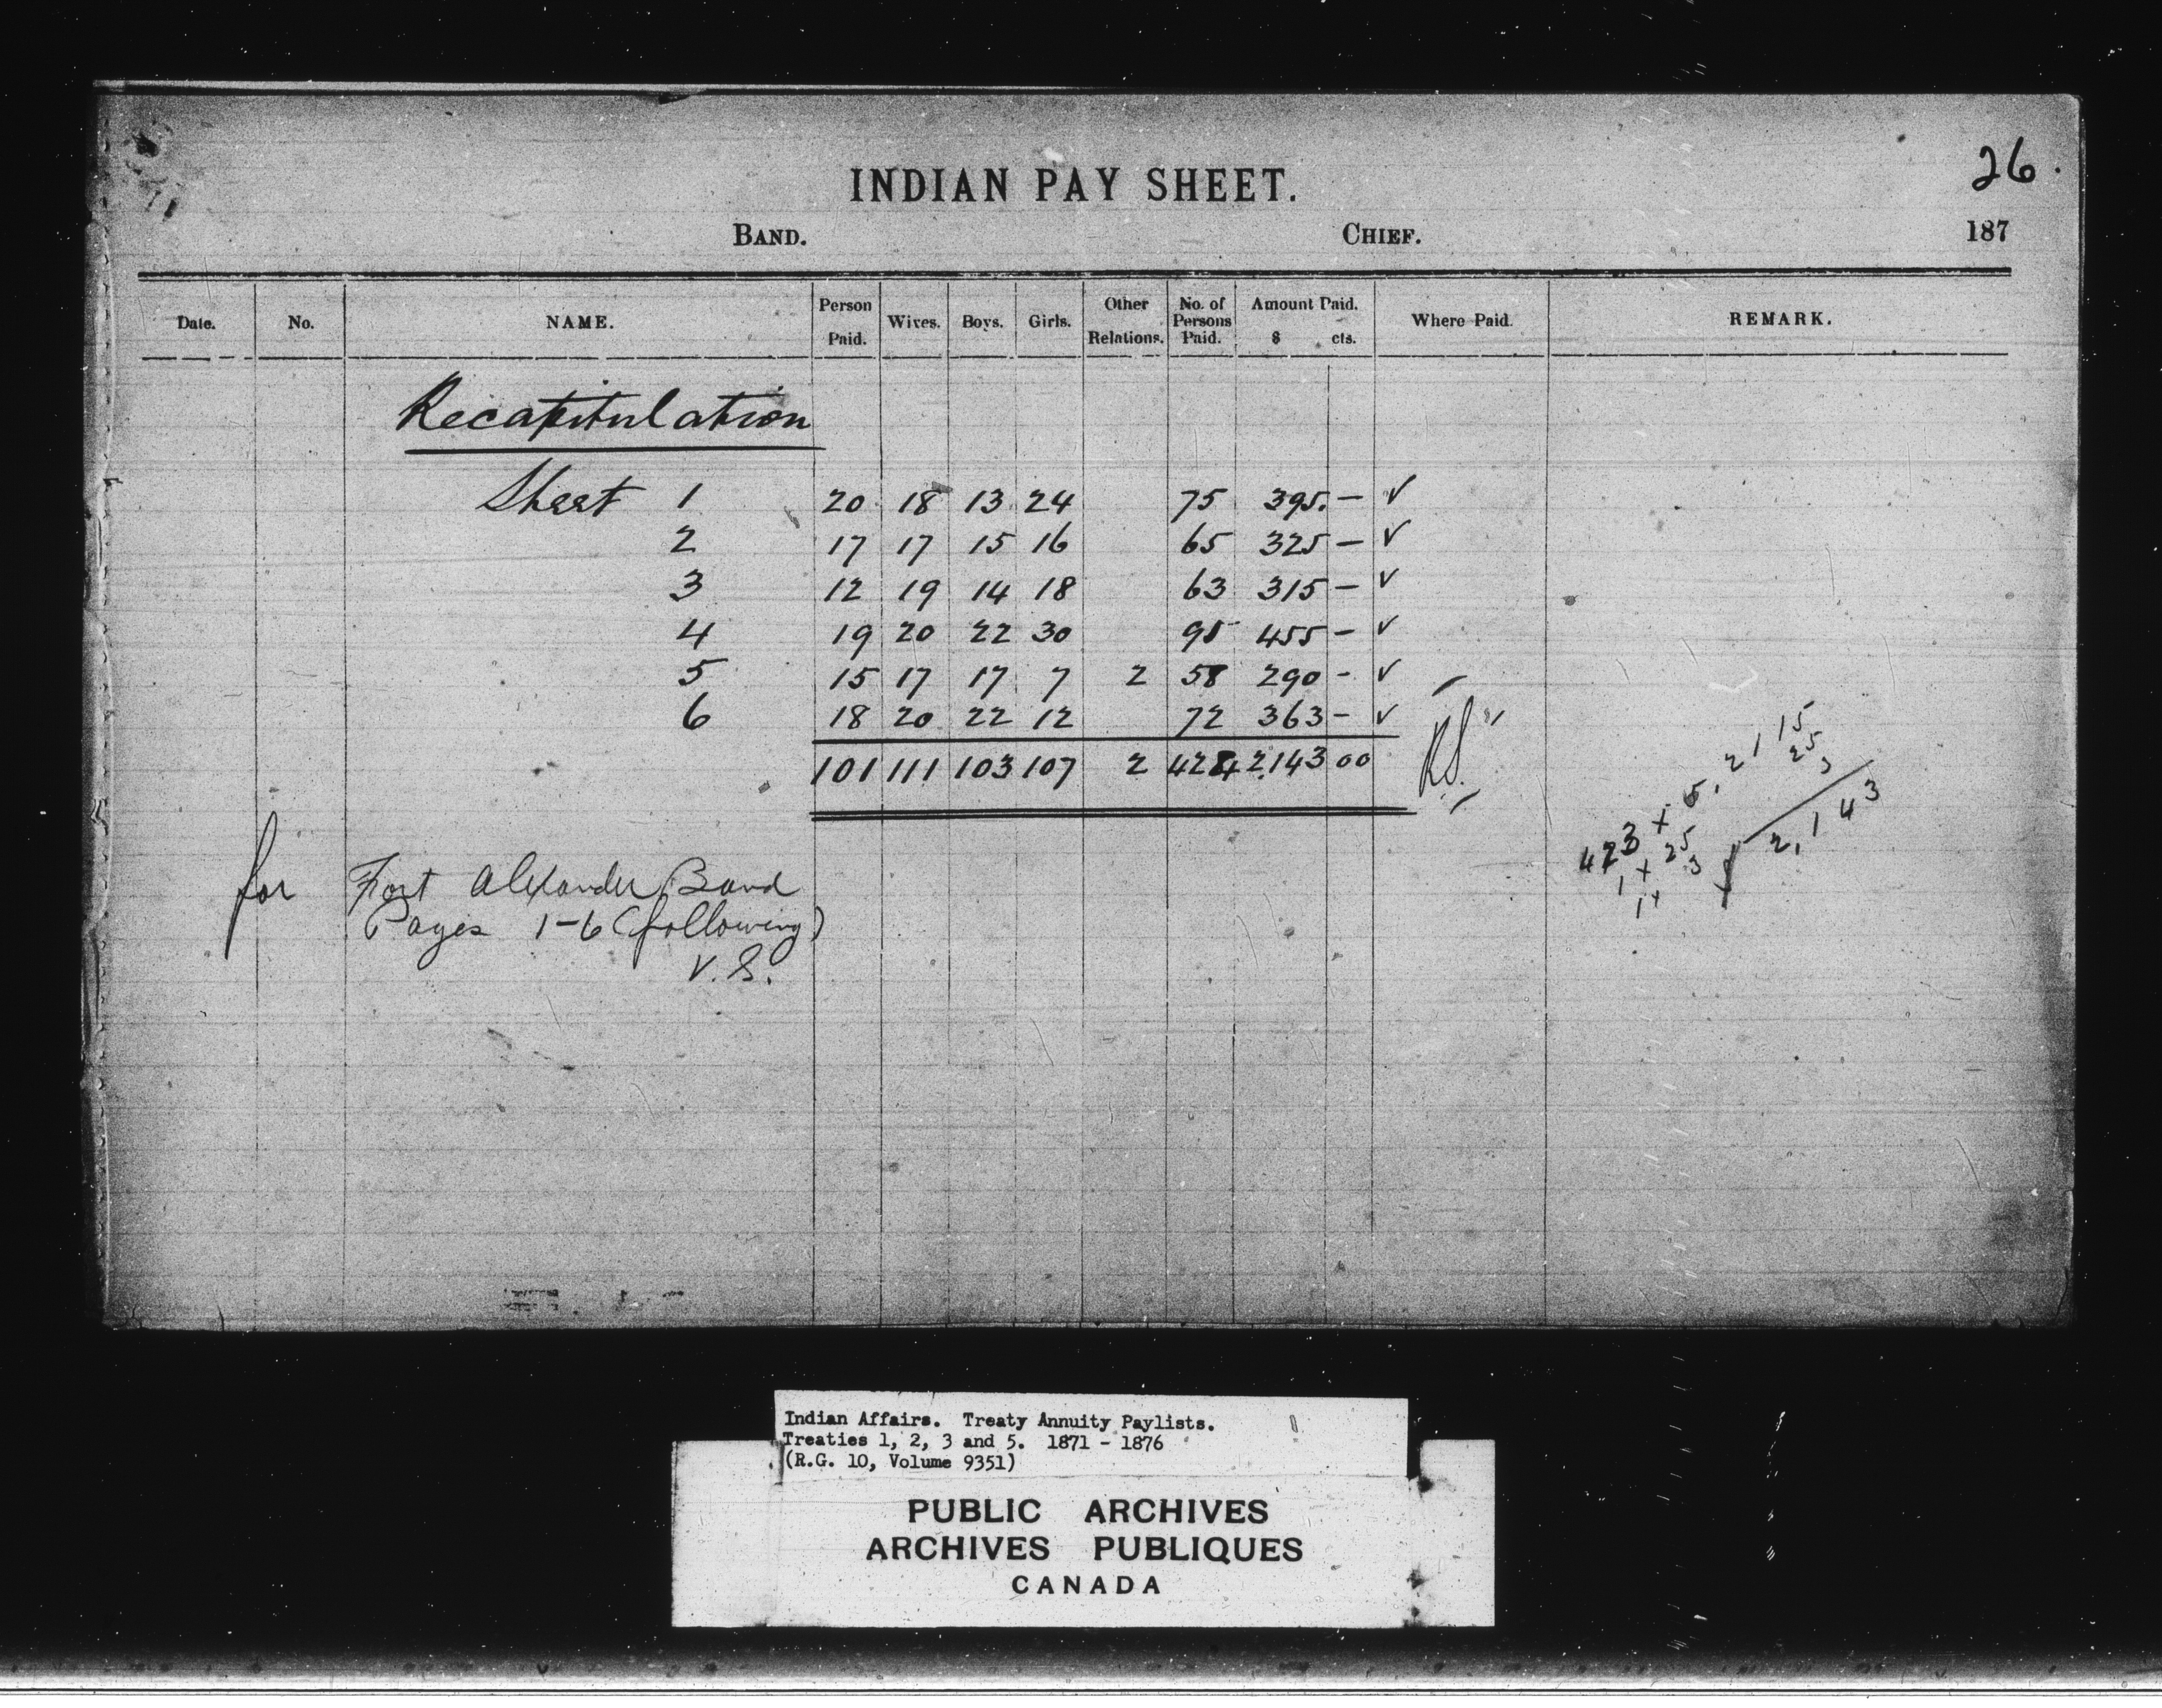 26.
INDIAN PAY SHEET.
BAND. CHIEF. 187
Date. No. NAME. Person Paid. Wives. Boys. Girls. Other Relations. No. of Persons Paid. Amount Paid. $ cts. Where Paid. REMARK.
Recapitulation
Sheet 1 20 18 13 24 75 395. — ✓
2 17 17 15 16 65 325 — ✓
3 12 19 14 18 63 315 — ✓
4 19 20 22 30 95 455 — ✓
5 15 17 17 7 2 58 290 - ✓
6 18 20 22 12 72 363 - ✓
101 111 103 107 2 424 2,143 00
423 + 5, 2115
1 + 25 25
1 + 3 3
2,143
for Fort Alexander Band
Pages 1-6 (following)
V. S.
Indian Affairs. Treaty Annuity Paylists.
Treaties 1, 2, 3 and 5. 1871 - 1876
(R.G. 10, Volume 9351)
PUBLIC ARCHIVES
ARCHIVES PUBLIQUES
CANADA